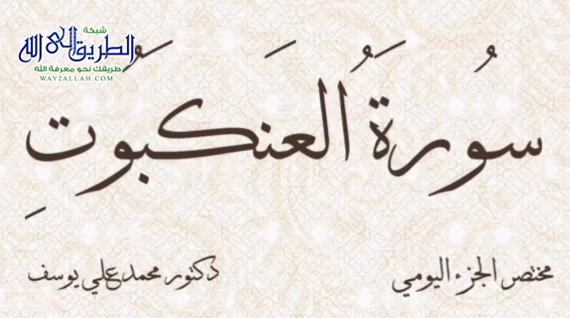 شبكة
الطريق إلى الله
طريقك نحو معرفة الله
WAY2ALLAH.COM
سُورَةُ العَنكَبُوتِ
مختصر الجزء اليومي
دكتور محمد علي يوسف